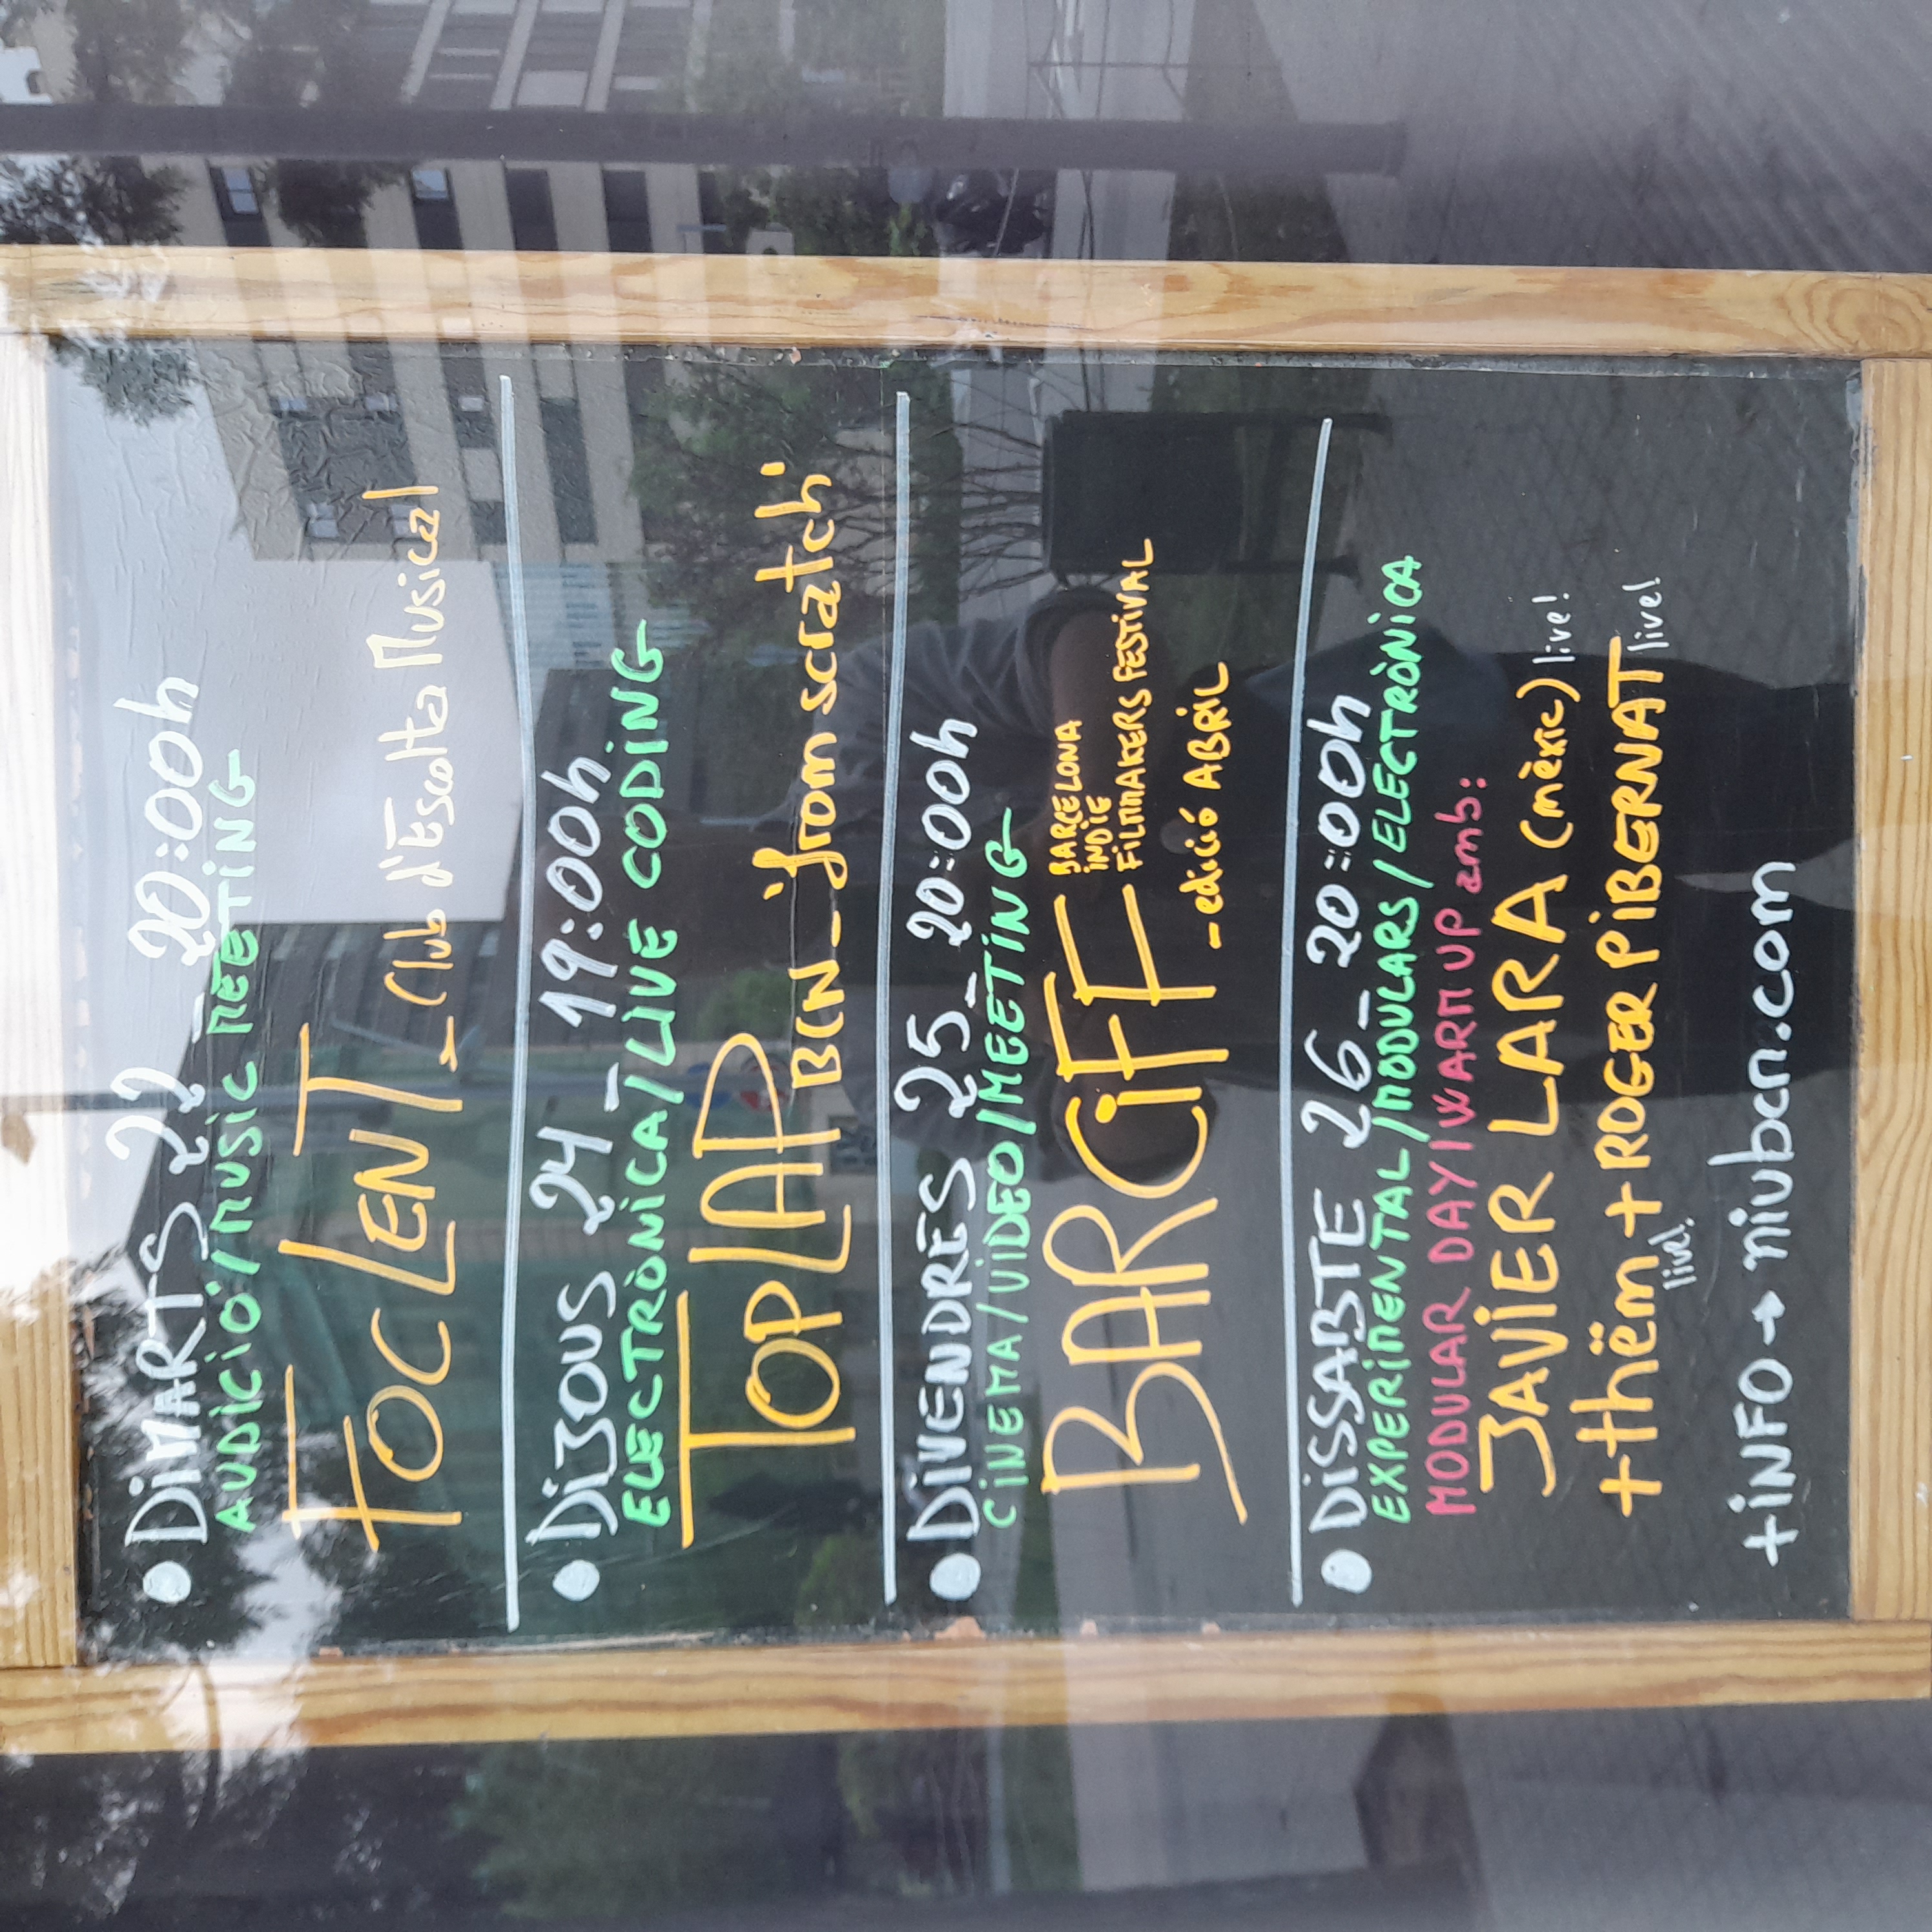 • DIMARTS 22 _ 20:00h
AUDICIÓ / MUSIC MEETING
FOC LENT _ Club d'Escolta Musical
• DIJOUS 24 _ 19:00h
ELECTRÒNICA / LIVE CODING
TOPLAP BCN _ 'from scratch'
• DIVENDRES 25 _ 20:00h
CINEMA / VIDEO / MEETING
BARCIFF
BARCELONA
INDIE
FILMMAKERS FESTIVAL
_ edició ABRIL
• DISSABTE 26 _ 20:00h
EXPERIMENTAL / MODULARS / ELECTRÒNICA
MODULAR DAY | WARM UP amb:
JAVIER LARA (mèxic) live!
+ thëm live! + ROGER PIBERNAT live!
+ INFO → niubcn.com